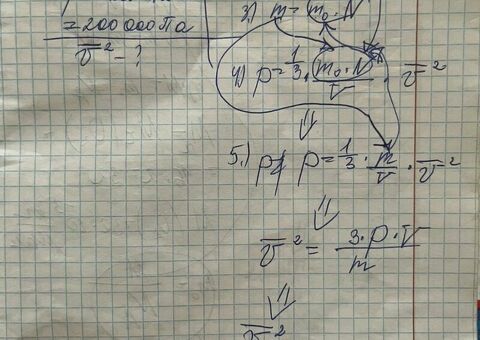 = 200 000 Па
v̅² - ?
3.) m = m₀ · N
4) p = 1/3 · (m₀ · N)/V · v̅²
⇓
5.) p = 1/3 · m/V · v̅²
⇓
v̅² = (3 · p · V)/m
⇓
v̅²